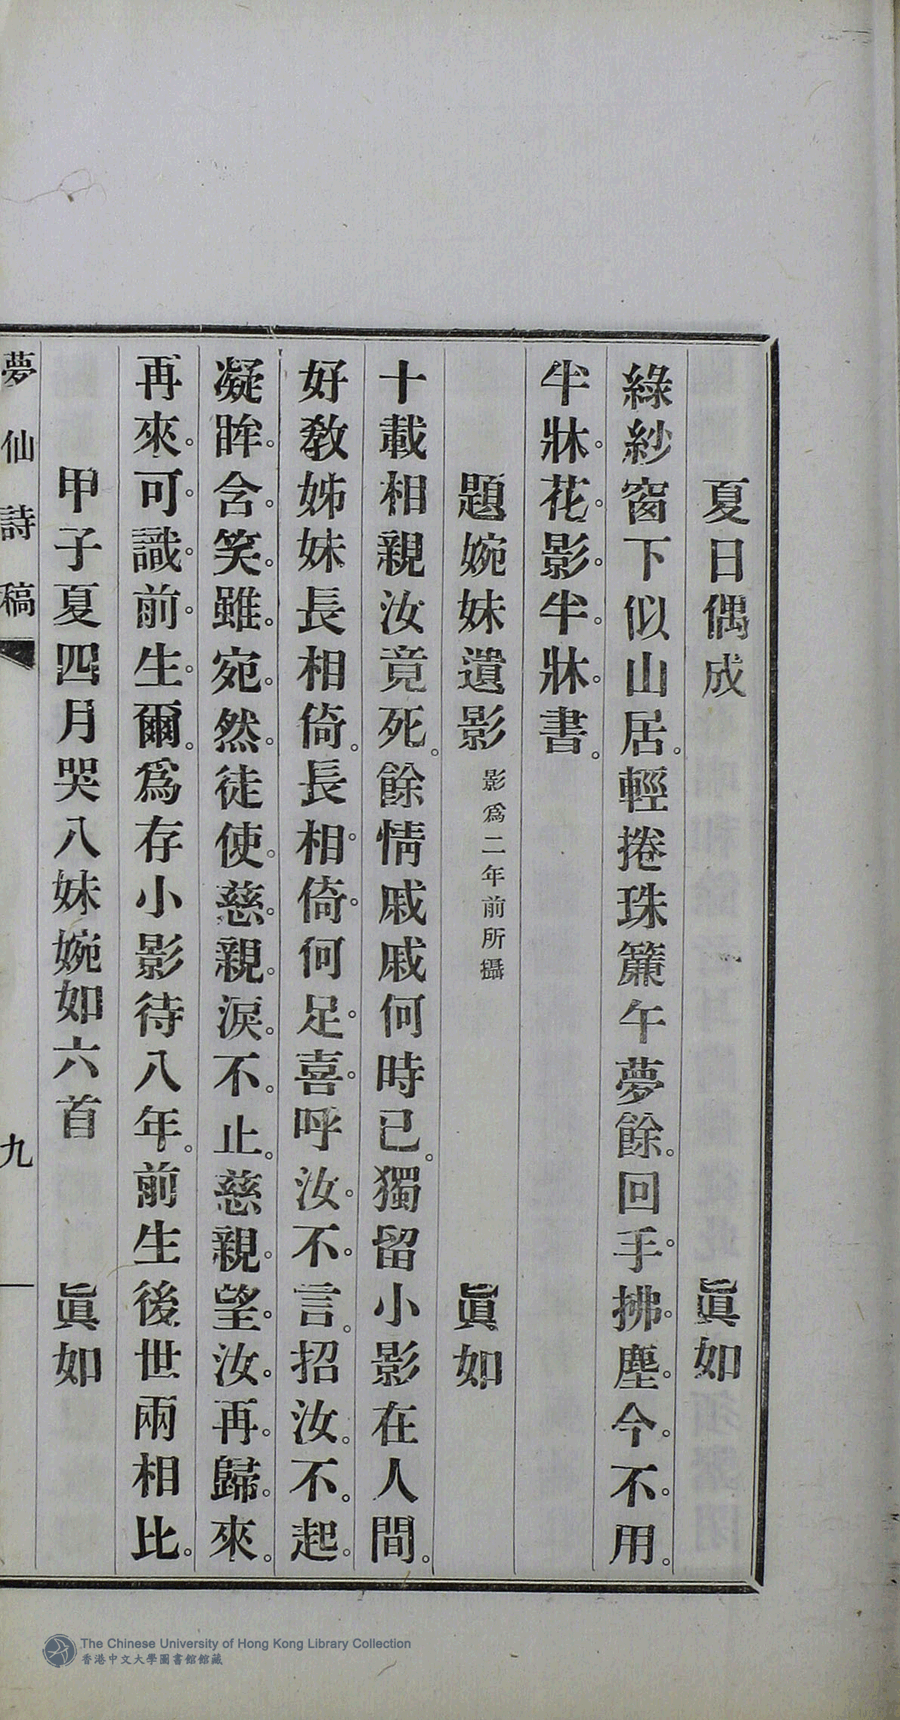 夏日偶成　眞如
綠紗窗下似山居。輕捲珠簾午夢餘。回手拂塵今不用。
半牀花影半牀書。
題婉妹遺影　影爲二年前所攝　眞如
十載相親汝竟死。餘情戚戚何時已。獨留小影在人間。
好敎姊妹長相倚。長相倚。何足喜。呼汝不言。招汝不起。
凝眸含笑雖宛然。徒使慈親淚不止。慈親望汝再歸來。
再來可識前生爾。爲存小影待八年。前生後世兩相比。
甲子夏四月哭八妹婉如六首　眞如
夢仙詩稿　九
The Chinese University of Hong Kong Library Collection
香港中文大學圖書館館藏